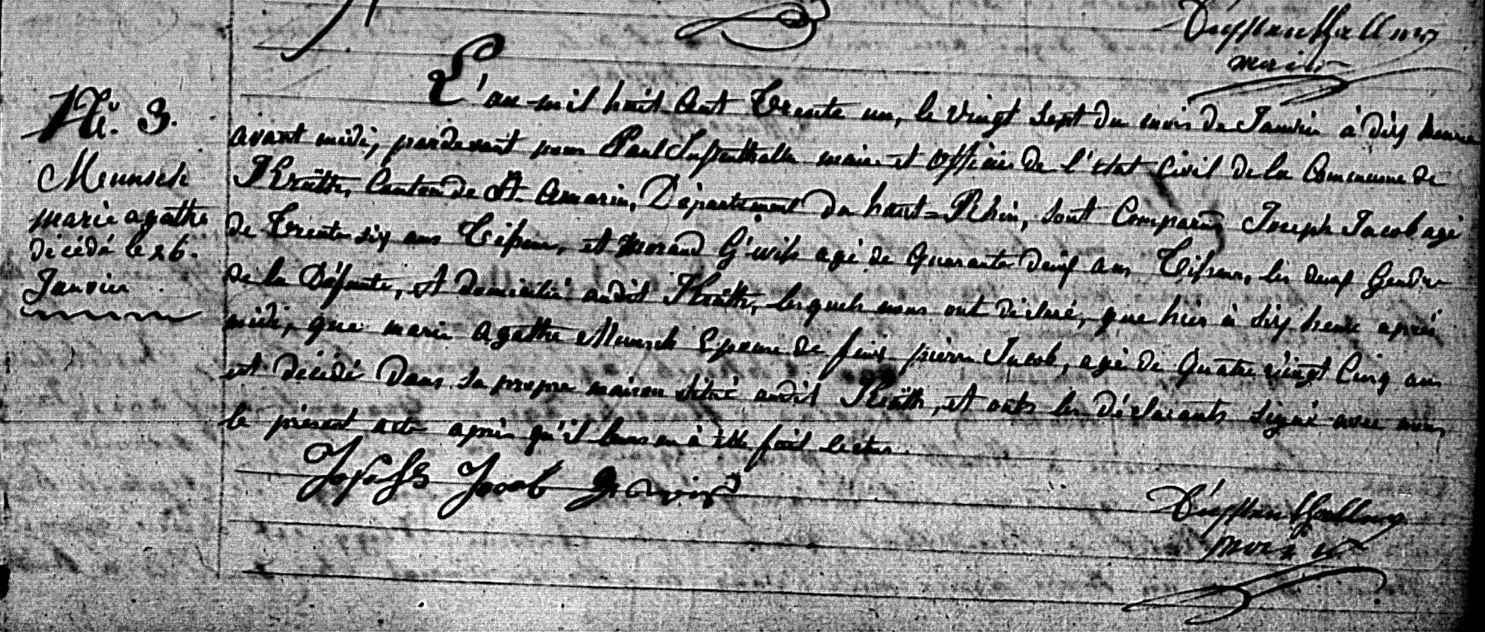 maire
N̊. 3.
Meunsch
marie agathe
décédé le 26.
Janvier
L'an mil huit Cent Trente un, le vingt Sept du mois de Janvier à dix heure
avant midi, pardevant nous Paul maire et officier de l'état Civil de la Commune de
Krüth, Canton de St. Amarin, Département du haut=Rhin, sont Comparu Joseph Jacob agé
de Trente six ans Tisseran, et morand G'wiss agé de Quarante deux ans Tisseran, les deux Gendre
de la Défunte, et domicilié audit Krüth, lesquels nous ont déclaré, que hier à six heure après
midi, que marie Agathe Meunsch Epouse de feüe pierre Jacob, agé de Quatre vingt Cinq ans
est décédé Dans sa propre maison situé audit Krüth, et onts les Déclarants signé avec nous
le présent acte après qu'il leurs en à été fait lecture.
Joseph Jacob
maire